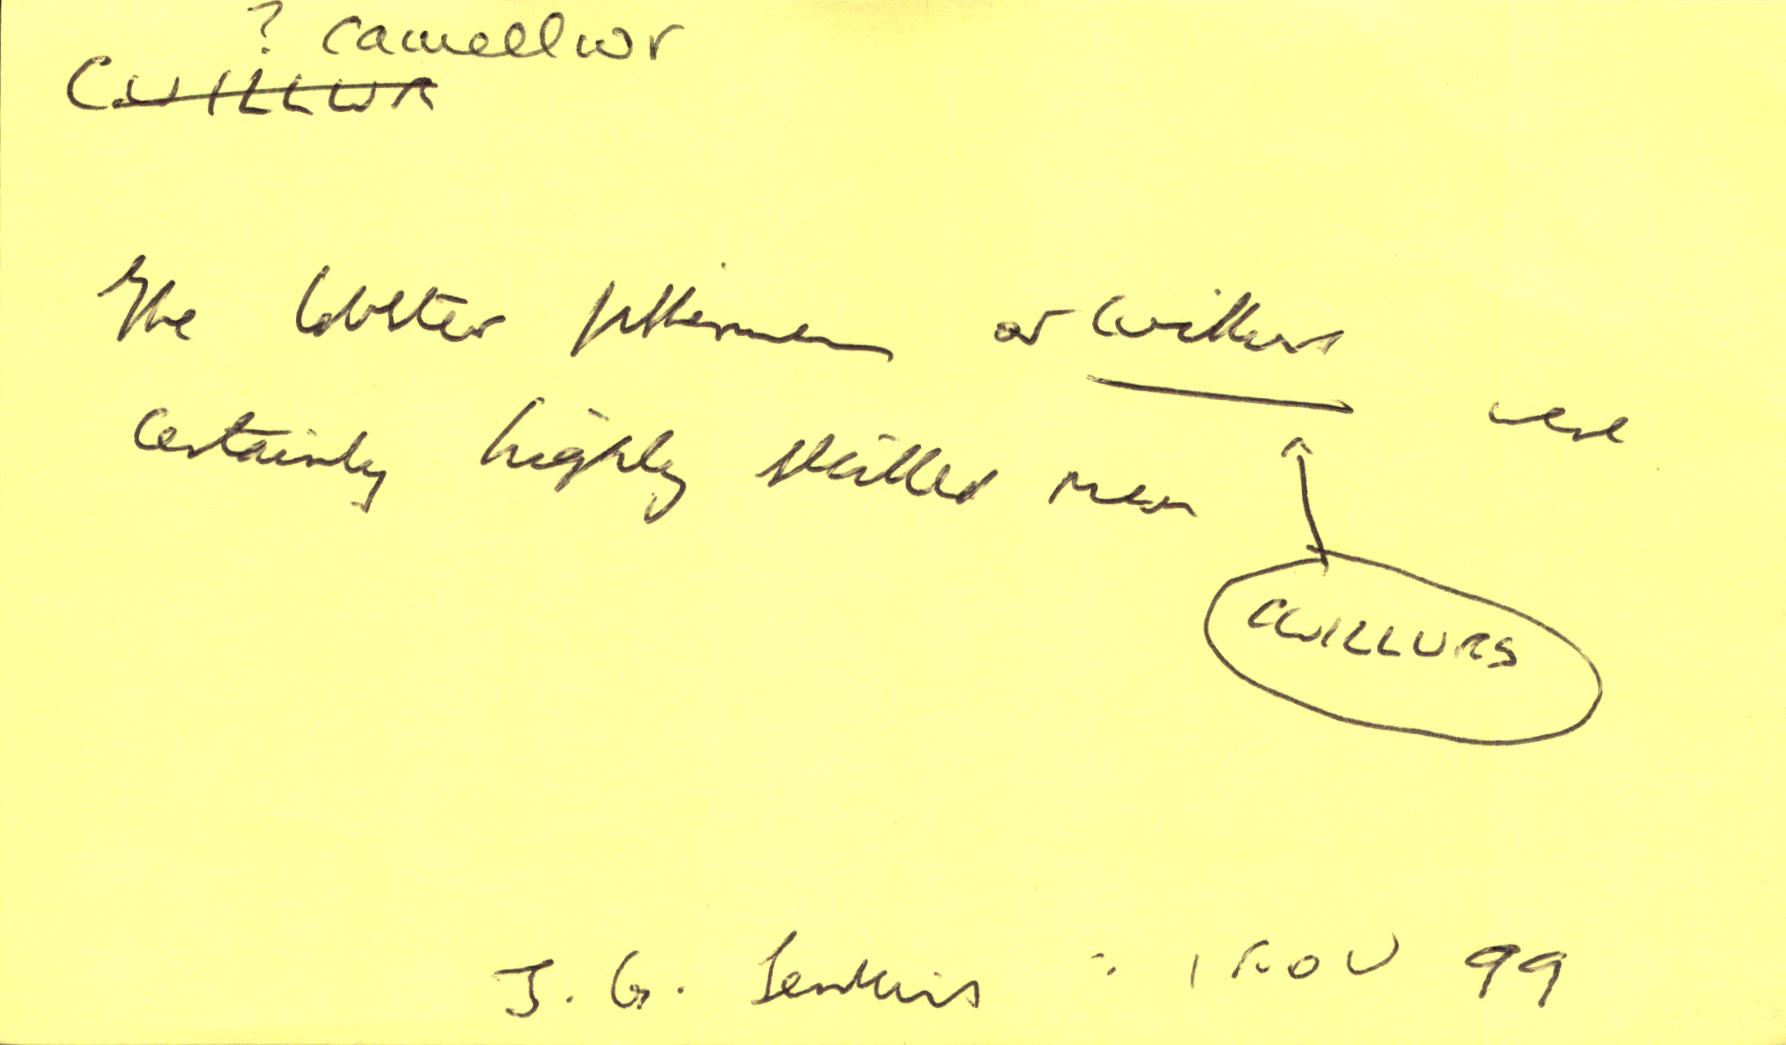 ? camellwr
CWILLWR
The lobster fishermen or Cwillurs were
certainly highly skilled men
CWILLURS
J. G. Jenkins : 1 NOV 99